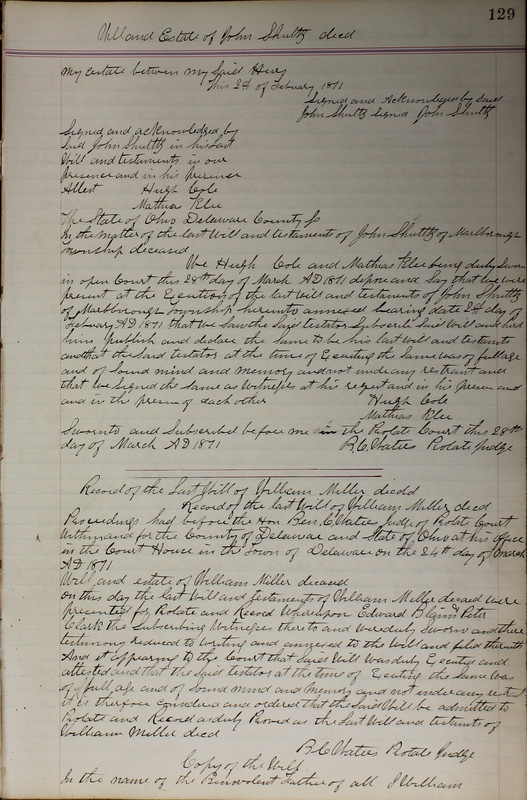 129
Will and Estate of John Shultz decd
my estate between my Said Heirs
This 24 of February 1871
Signed and Acknowledged by said
John Shultz Signed John Shultz
Signed and acknowledged by
Said John Shultz in his Last
Will and testaments in our
presence and in his presence
Attest Hugh Cole
Mathias Klee
The State of Ohio Delaware County Ss
In the matter of the last Will and testaments of John Shultz of Marlborough
township deceased
We Hugh Cole and Mathias Klee being duly Sworn
in open Court this 28th day of March AD 1871 depose and Say that we were
present at the Execution of the last Will and testaments of John Shultz
of Marlborough township hereunto annexed bearing date 24 day of
February AD 1871 that we Saw the Said testator Subscribe Said Will and heard
him publish and declare the same to be his last Will and testaments
and that the Said testator at the time of Executing the Same was of full age
and of Sound mind and memory and not under any restraint and
that we Signed the Same as Witnesses at his request and in his presence and
and in the presence of each other Hugh Cole
Mathias Klee
Sworn to and Subscribed before me in the Probate Court this 28th
day of March AD 1871 B.C. Waters Probate Judge
Record of the Last Will of William Miller decd
Record of the last Will of William Miller decd
Proceedings had before the Hon Ben. C. Waters Judge of Probate Court
Within and for the County of Delaware and State of Ohio at his office
in the Court House in the Town of Delaware on the 24th day of March
AD 1871
Will and estate of William Miller deceased
On this day the last Will and testements of William Miller deceased were
presented for Probate and Record Whereupon Edward and Peter
Clark the Subscribing Witnesses thereto and were duly Sworn and there
testimony reduced to writing and annexed to the Will and filed therewith
And it appearing to the Court that Said Will was duly Executed and
attested and that the Said testator at the time of Executing the Same was
of full age and of Sound mind and Memory and not under any restraint
it is therefore Considered and ordered that the Said Will be admitted to
Probate and Record as duly Proved as the Last Will and testaments of
William Miller decd
B.C. Waters Probate Judge
Copy of the Will
In the name of the Benevolent Father of all I William